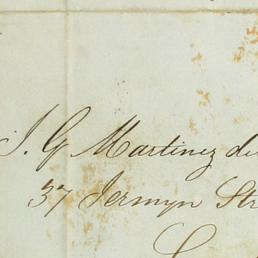 J. G Martinez de
37 Jermyn Str